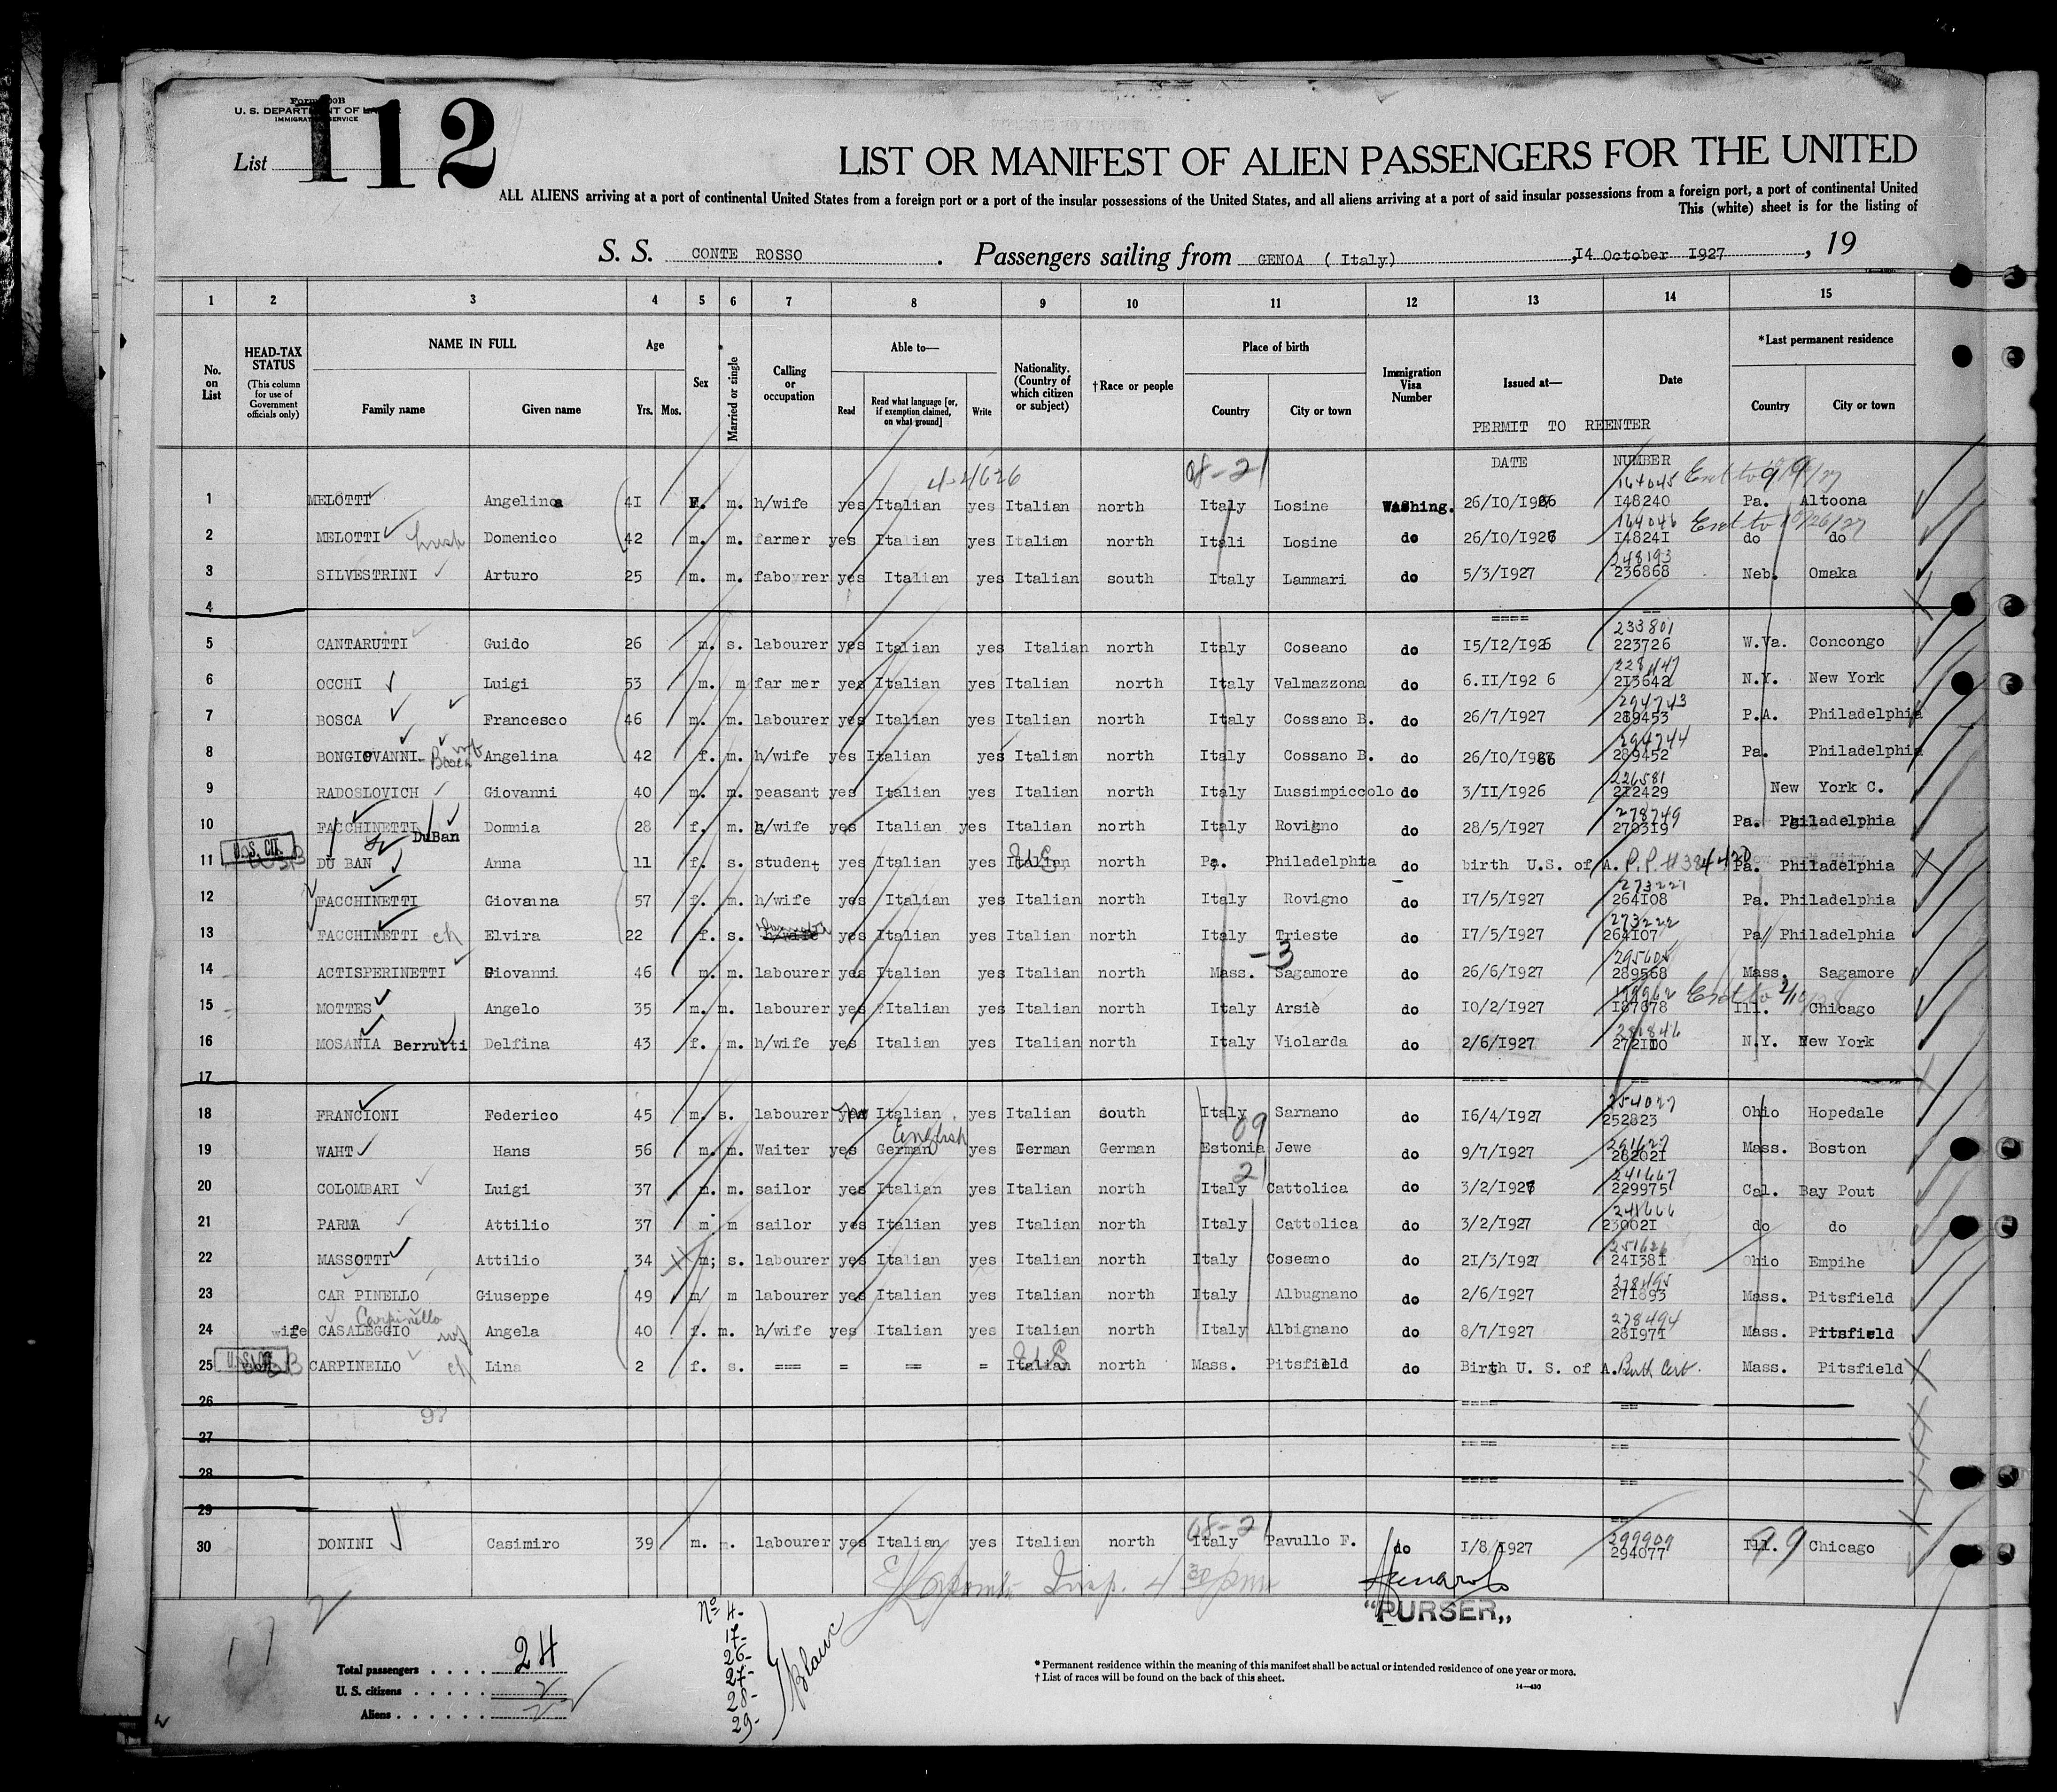 Form 500B
U. S. DEPARTMENT OF LABOR
IMMIGRATION SERVICE
List 112
LIST OR MANIFEST OF ALIEN PASSENGERS FOR THE UNITED
ALL ALIENS arriving at a port of continental United States from a foreign port or a port of the insular possessions of the United States, and all aliens arriving at a port of said insular possessions from a foreign port, a port of continental United
This (white) sheet is for the listing of
S. S. CONTE ROSSO . Passengers sailing from GENOA ( Italy) , 14 October 1927 , 19
1 2 3 4 5 6 7 8 9 10 11 12 13 14 15
No. on List
HEAD-TAX STATUS (This column for use of Government officials only)
NAME IN FULL Family name Given name
Age Yrs. Mos.
Sex
*Married or single
Calling or occupation
Able to— Read Read what language [or, if exemption claimed, on what ground] Write
Nationality. (Country of which citizen or subject)
†Race or people
Place of birth Country City or town
Immigration Visa Number
Issued at—
Date
*Last permanent residence Country City or town
PERMIT TO REENTER
DATE NUMBER
08-21
4-4626
164045 Ext to 9/9/27
1 MELOTTI Angelina 41 F. m. h/wife yes Italian yes Italian north Italy Losine Washing. 26/10/1926 148240 Pa. Altoona
164046 Ext to 10/26/27
2 MELOTTI husb Domenico 42 m. m. farmer yes Italian yes Italian north Itali Losine do 26/10/1926 148241 do do
248193
3 SILVESTRINI Arturo 25 m. m. fabourer yes Italian yes Italian south Italy Lammari do 5/3/1927 236868 Neb. Omaka
4 ==== ==
233801
5 CANTARUTTI Guido 26 m. s. labourer yes Italian yes Italian north Italy Coseano do 15/12/1926 223726 W.Va. Concongo
228447
6 OCCHI Luigi 53 m. m far mer yes Italian yes Italian north Italy Valmazzona do 6.11/192 6 213642 N.Y. New York
294743
7 BOSCA Francesco 46 m. m. labourer yes Italian yes Italian north Italy Cossano B. do 26/7/1927 289453 P.A. Philadelphia
294744
8 BONGIOVANNI-Bosca wf Angelina 42 f. m. h/wife yes Italian yes Italian north Italy Cossano B. do 26/10/1926 289452 Pa. Philadelphia
226581
9 RADOSLOVICH Giovanni 40 m. m. peasant yes Italian yes Italian north Italy Lussimpiccolo do 3/11/1926 212429 New York C.
278749
10 FACCHINETTI DuBan Domnia 28 f. m. h/wife yes Italian yes Italian north Italy Rovigno do 28/5/1927 270319 Pa. Philadelphia
U.S. CIT.
11 DU BAN Anna 11 f. s. student yes Italian yes Italian north Pa. Philadelphia do birth U.S. of A. P.P. #384420 Pa. Philadelphia
273221
12 FACCHINETTI Giovanna 57 f. m. h/wife yes Italian yes Italian north Italy Rovigno do 17/5/1927 264108 Pa. Philadelphia
273222
13 FACCHINETTI ch Elvira 22 f. s. h/wife yes Italian yes Italian north Italy Trieste do 17/5/1927 264107 Pa Philadelphia
-3 295605
14 ACTISPERINETTI Giovanni 46 m. m. labourer yes Italian yes Italian north Mass. Sagamore do 26/6/1927 289568 Mass. Sagamore
Ext to 2/10/28
15 MOTTES Angelo 35 m. m. labourer yes Italian yes Italian north Italy Arsiè do 10/2/1927 187678 Ill. Chicago
281846
16 MOSANIA Berrutti Delfina 43 f. m. h/wife yes Italian yes Italian north Italy Violarda do 2/6/1927 272110 N.Y. New York
17 ===== ==
254027
18 FRANCIONI Federico 45 m. s. labourer yes Italian yes Italian south Italy Sarnano do 16/4/1927 252823 Ohio Hopedale
English 09 291627
19 WAHT Hans 56 m. m. Waiter yes German yes German German Estonia Jewe do 9/7/1927 282021 Mass. Boston
21 241667
20 COLOMBARI Luigi 37 m. m. sailor yes Italian yes Italian north Italy Cattolica do 3/2/1927 229975 Cal. Bay Pout
241666
21 PARMA Attilio 37 m m sailor yes Italian yes Italian north Italy Cattolica do 3/2/1927 230021 do do
251626
22 MASSOTTI Attilio 34 m; s. labourer yes Italian yes Italian north Italy Coseano do 21/3/1927 241381 Ohio Empihe
278495
23 CAR PINELLO Giuseppe 49 m/ m labourer yes Italian yes Italian north Italy Albugnano do 2/6/1927 271893 Mass. Pitsfield
Carpinello 278494
24 wife CASALEGGIO wf Angela 40 f. m. h/wife yes Italian yes Italian north Italy Albignano do 8/7/1927 281971 Mass. Pitsfield
U. S. CIT.
25 CARPINELLO ch Lina 2 f. s. === = == = Italian north Mass. Pitsfield do Birth U. S. of A. Birth Cert. Mass. Pitsfield
26 ==== ==
27 ==== ==
28 ==== ==
29 ==== ==
08-21 299909 99
30 DONINI Casimiro 39 m. m. labourer yes Italian yes Italian north Italy Pavullo F. do 1/8/1927 294077 Ill. Chicago
Insp. 4 30 pm
"PURSER„
No 4-
17-
26-
27-
28-
29-
Blanc
Total passengers . . . . 24
U. S. citizens . . . . . 2
Aliens . . . . . . 22
* Permanent residence within the meaning of this manifest shall be actual or intended residence of one year or more.
† List of races will be found on the back of this sheet.
14—430